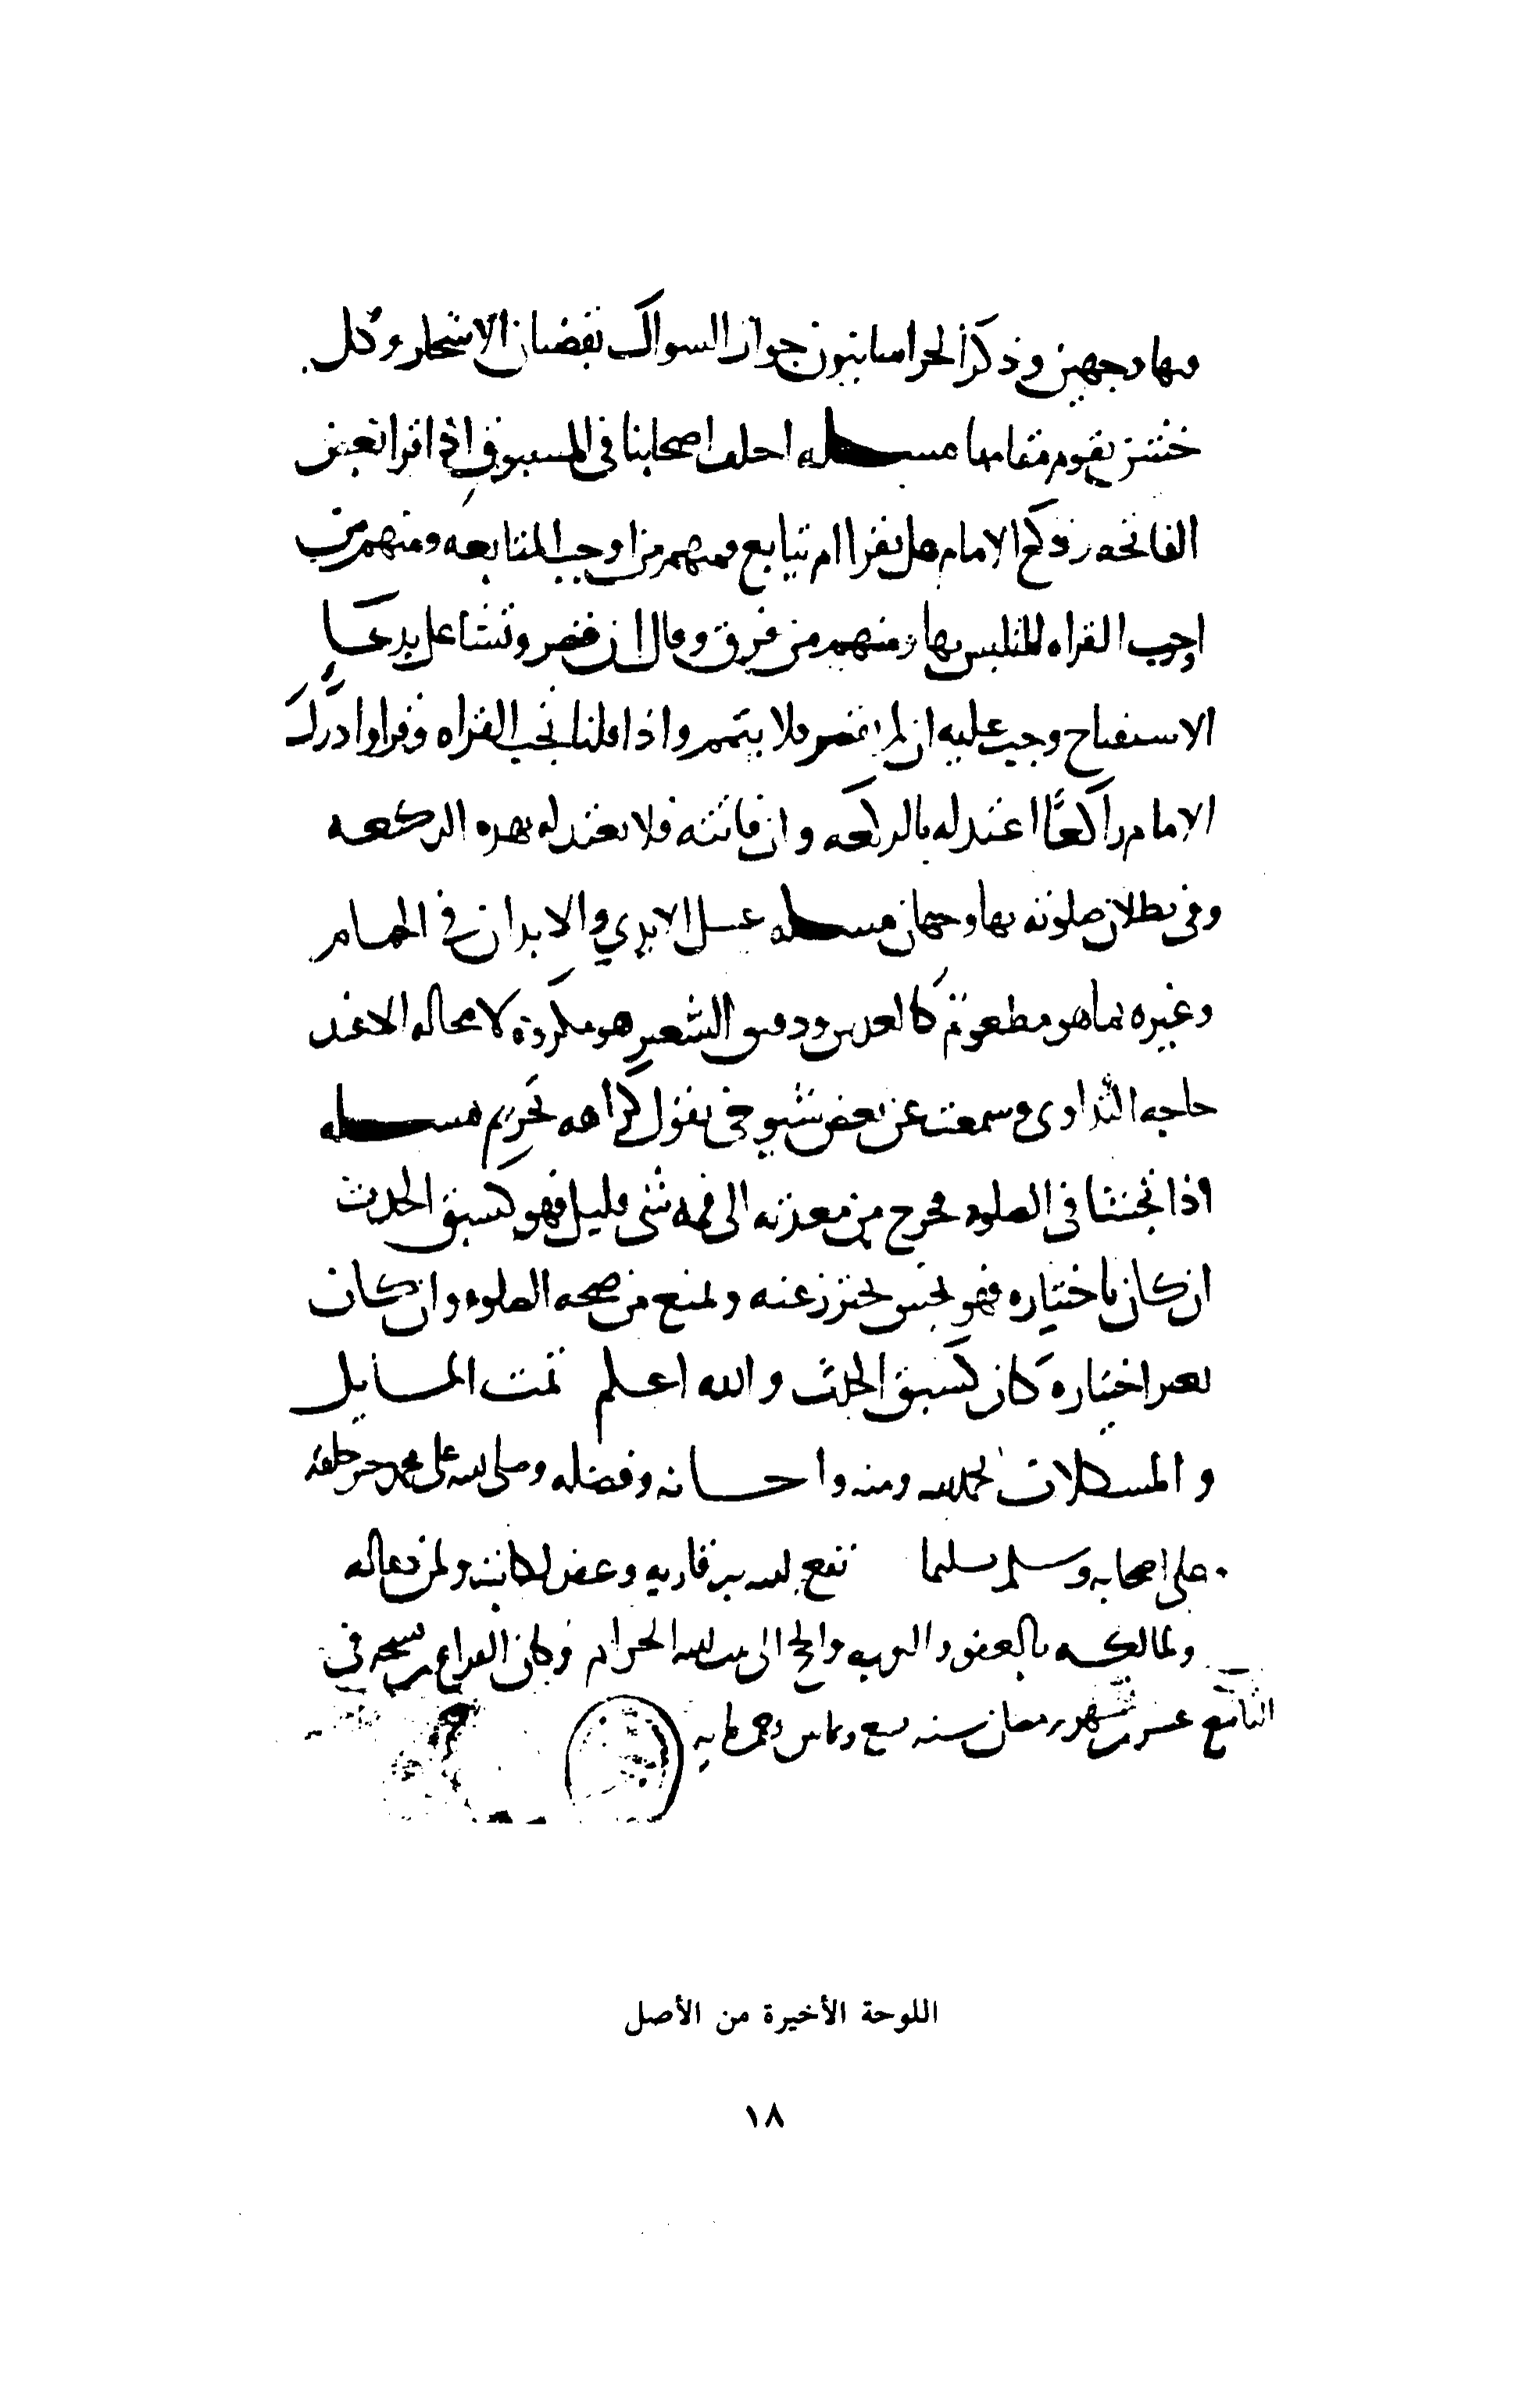 فيها وجهين وذكر الخراسانيون جواز السواك بقضبان الاشجار وكل
خشن يقوم مقامها مسله اختلف اصحابنا في المسبوق اذا قرا بعض
الفاتحه وركع الامام هل يقرا ام يتابع فمنهم من اوجب المتابعه ومنهم من
اوجب القراه للتلبس بها ومنهم من فرق وقال ان قصر وتشاغل بدعاء
الاستفتاح وجبت عليه ان لم يقصر فلا يتمم واذا قلنا تجب القراه فقرا وادرك
الامام راكعًا اعتد له بالركعه وان فاتته فلا يعتد له بهذه الركعه
وفي بطلان صلوته بها وجهان مسله غسل الايدي والابدان في الحمام
وغيره بما هو مطعوم كالعدس ودقيق الشعير هو مكروه لا محاله الا عند
حاجه التداوي وسمعت عن بعض شيوخي يقول كراهه تحريم مسله
اذا تجشا في الصلوه فخرج من معدته الى فمه شي قليل فهو كسبق الحدث
ان كان باختياره فهو نجس يحترز عنه ويمنع من صحه الصلوه وان كان
بغير اختياره كان كسبق الحدث والله اعلم تمت المسايل
و المشكلات بحمد الله ومنه واحسانه وفضله وصلى الله على محمد خير خلقه
وعلى اصحابه وسلم تسليما نفع الله به قاريه وغفر لكاتبه ولمن دعا له
ولمالكه بالعفو والتوبه والحج الى بيت الله الحرام وكان الفراغ من نسخه في
التاسع عشر من شهر رمضان سنه سبع وثمانين وخمس مايه
اللوحة الأخيرة من الأصل
١٨